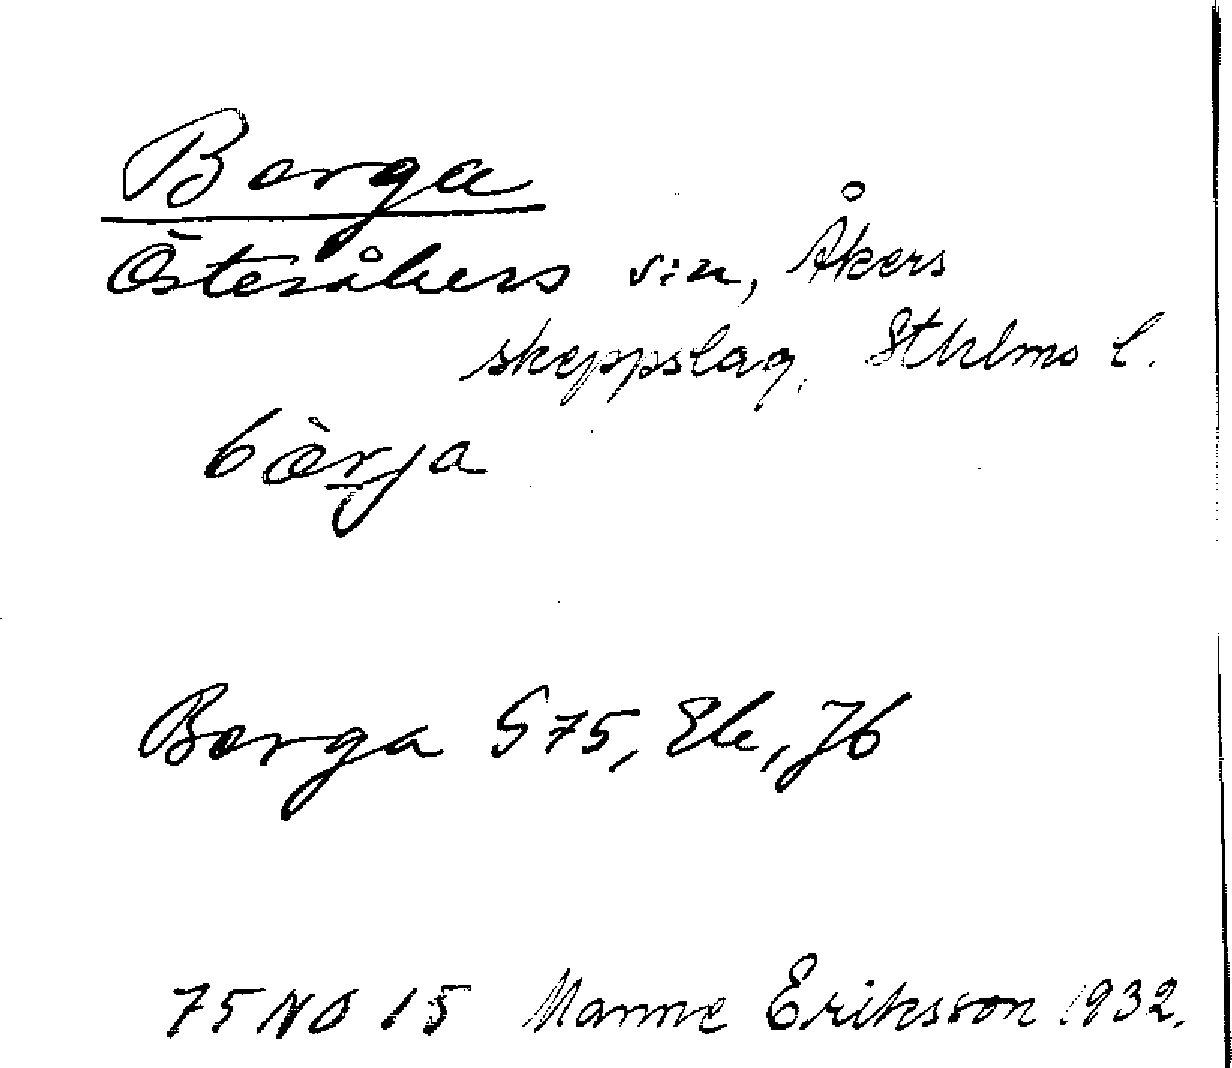 Berga
Österåkers s:n, Åkers
skeppslag, Sthlms l.
bær̤ja
Berga G75, Ek, Jb
75 NO 15 Manne Eriksson 1932.